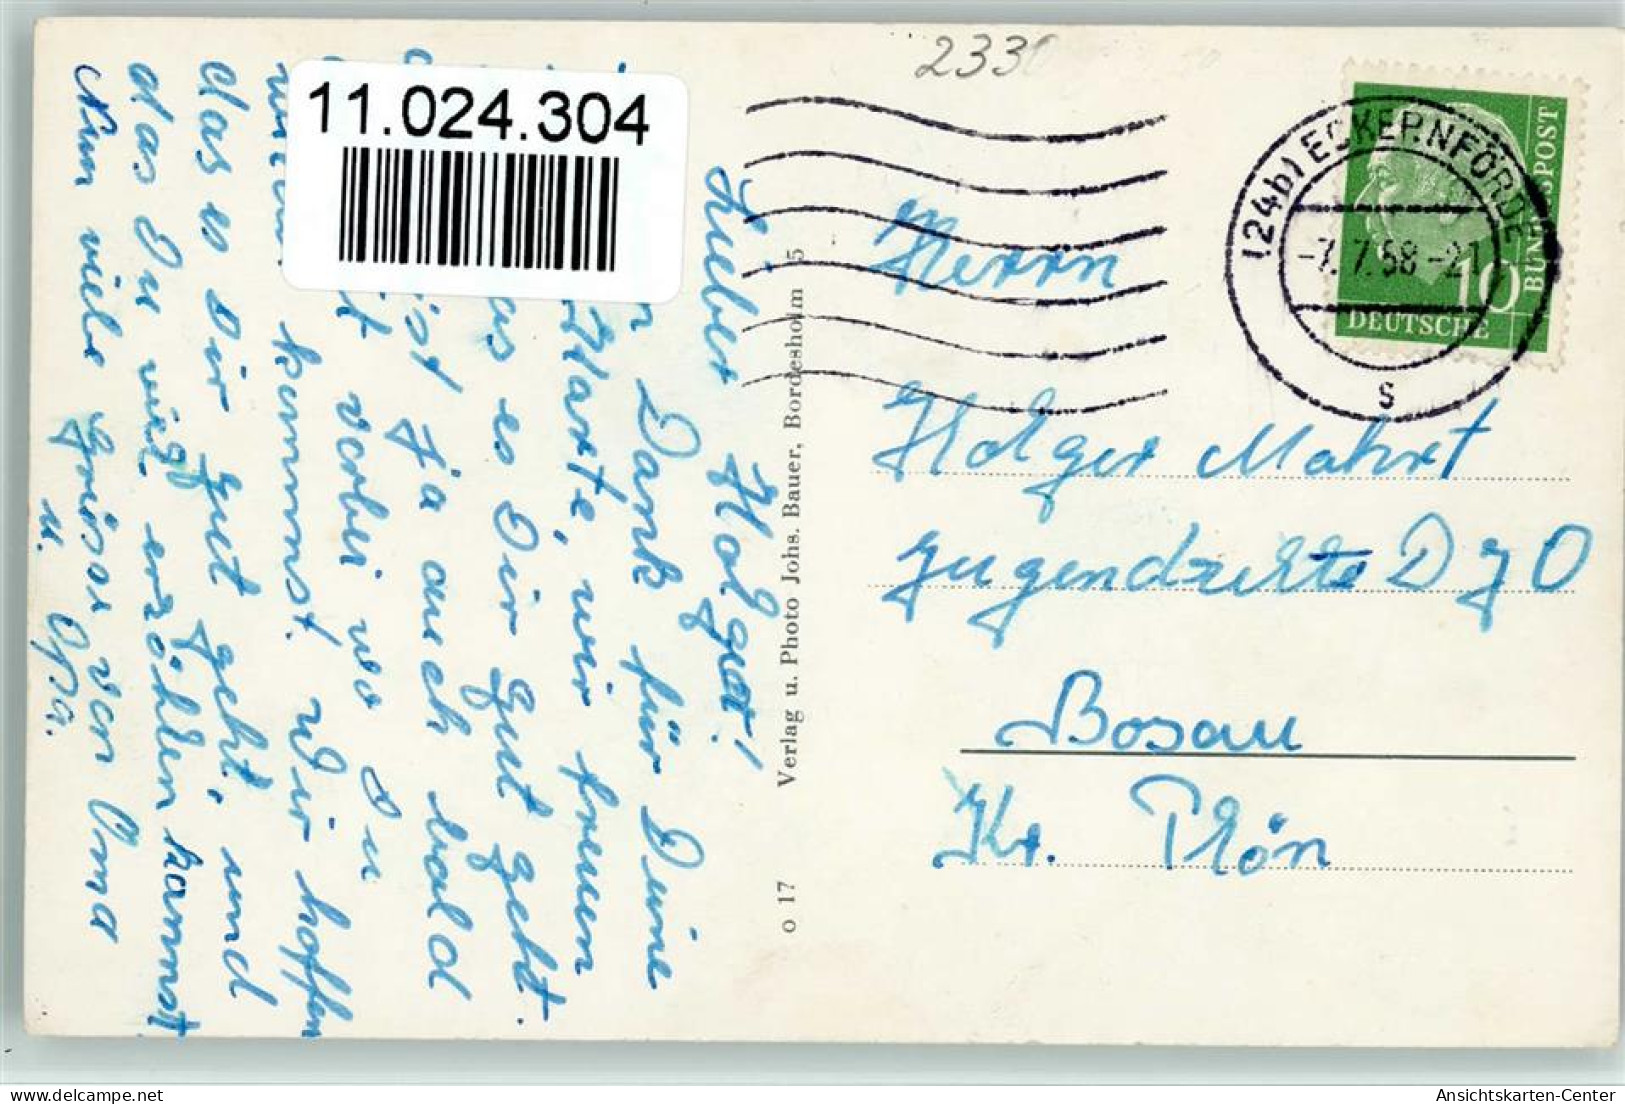 2330
11.024.304
(24b) ECKERNFÖRDE
-7.7.58-21
s
10
DEUTSCHE
BUNDESPOST
Herrn
Holger Mahrt
Jugendzeltte D J O
Bosau
Kr. Plön
o 17 Verlag u. Photo Johs. Bauer, Bordesholm 5
Lieber Holger!
Dank für Deine
Karte, wir freuen
das es Dir gut geht.
ist ja auch bald
vorbei wo Du
kommst. Wir hoffen
das es Dir gut geht, und
das Du viel erzählen kannst
Nun viele Grüsse von Oma
u. Opa.
Ansichtskarten-Center